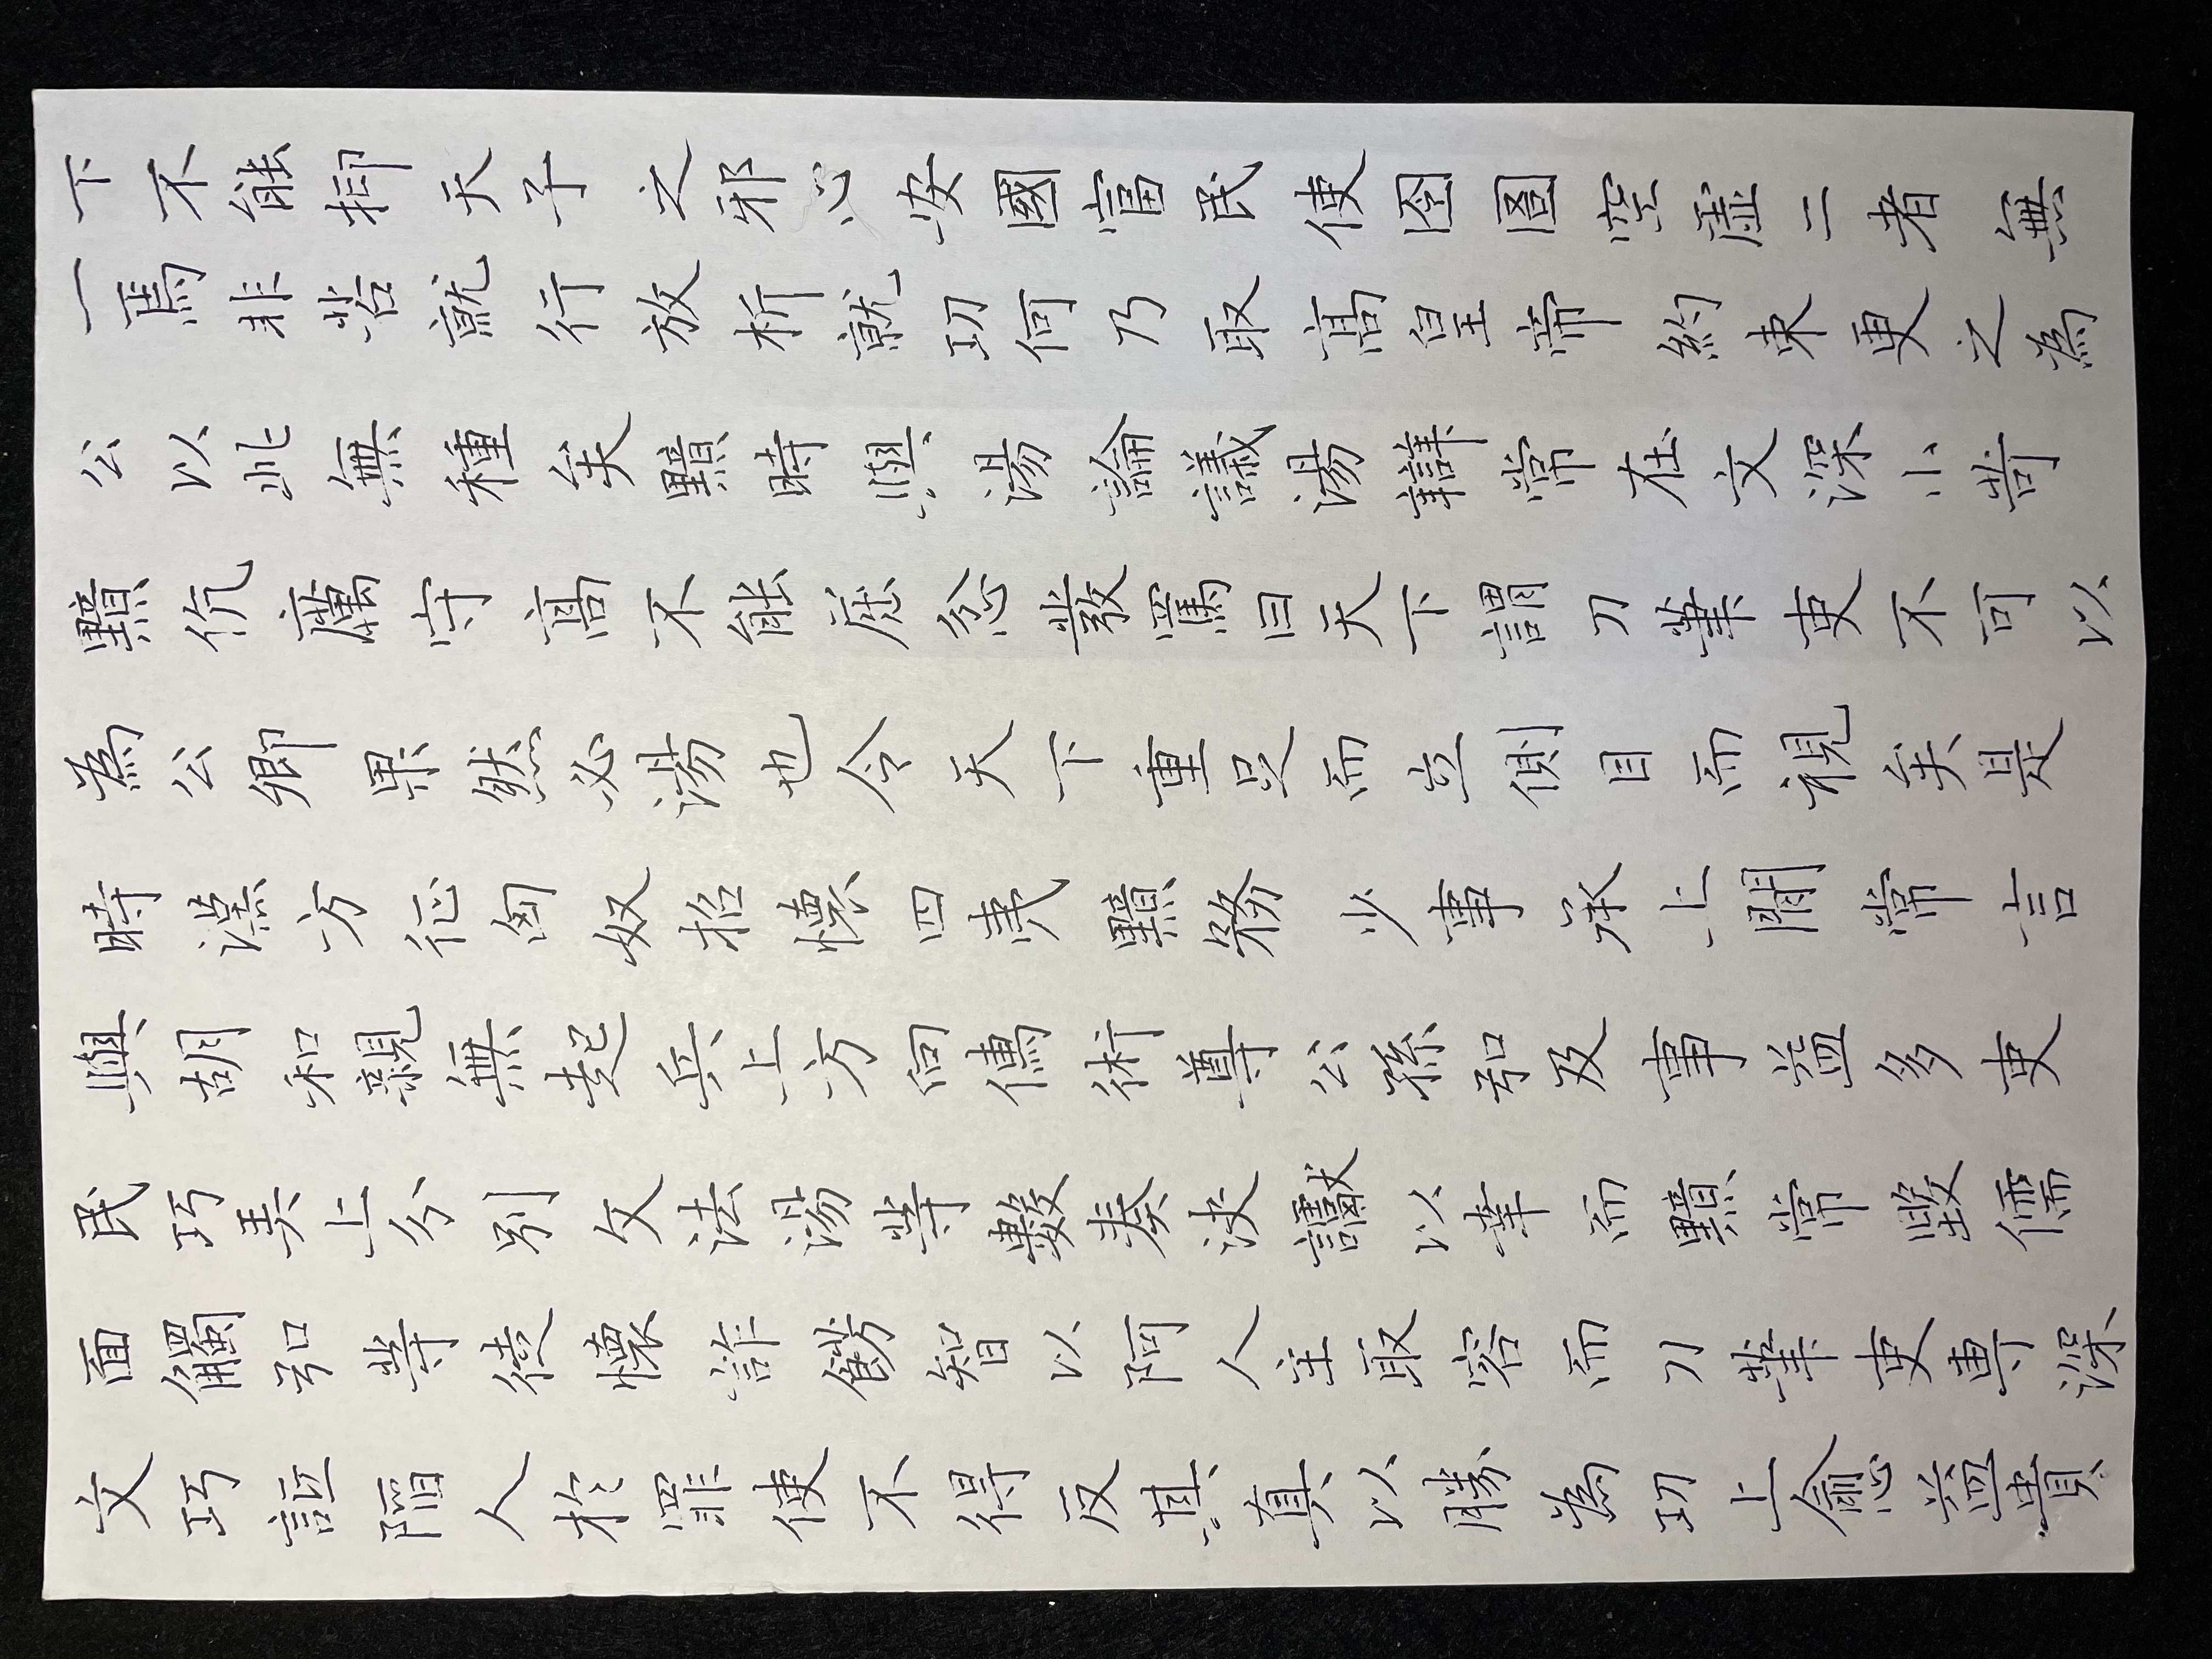 下不能抑天子之邪心安國富民使囹圄空虛二者無
一焉非苦就行放析就功何乃取高皇帝約束更之為
公以此無種矣黯時與湯論議湯辯常在文深小苛
黯伉厲守高不能屈忿發罵曰天下謂刀筆吏不可以
為公卿果然必湯也令天下重足而立側目而視矣是
時漢方征匈奴招懷四夷黯務少事承上間常言
與胡和親無起兵上方向儒術尊公孫弘及事益多吏
民巧弄上分別文法湯等數奏決讞以幸而黯常毀儒
面觸弘等徒懷詐飾智以阿人主取容而刀筆吏專深
文巧詆陷人於罪使不得反其真以勝為功上愈益貴